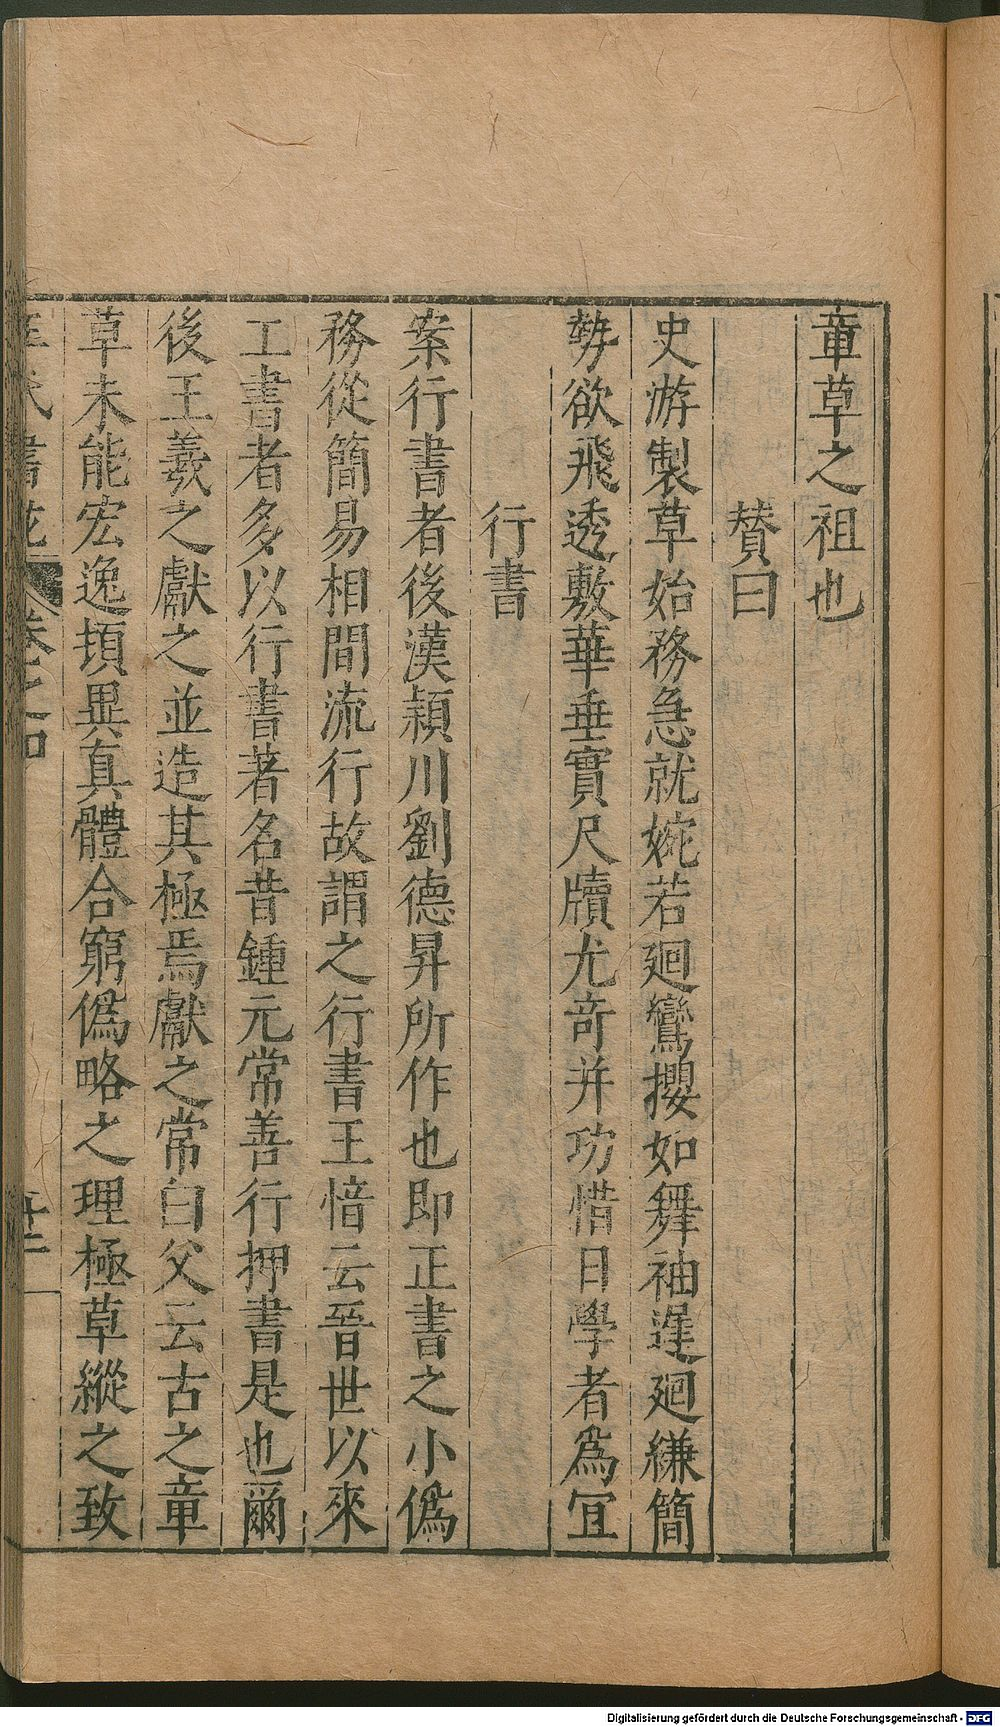 章草之祖也
賛曰
史游製草始務急就婉若廻鸞攫如舞袖遲廻縑簡
勢欲飛透敷華垂實尺牘尤奇并功惜日學者為宜
行書
案行書者後漢潁川劉德昇所作也即正書之小偽
務從簡易相間流行故謂之行書王愔云晉世以來
工書者多以行書著名昔鍾元常善行押書是也爾
後王羲之獻之並造其極焉獻之常白父云古之章
草未能宏逸頓異真體合窮偽略之理極草縱之致
王氏書苑 卷之四
Digitalisierung gefördert durch die Deutsche Forschungsgemeinschaft - DFG